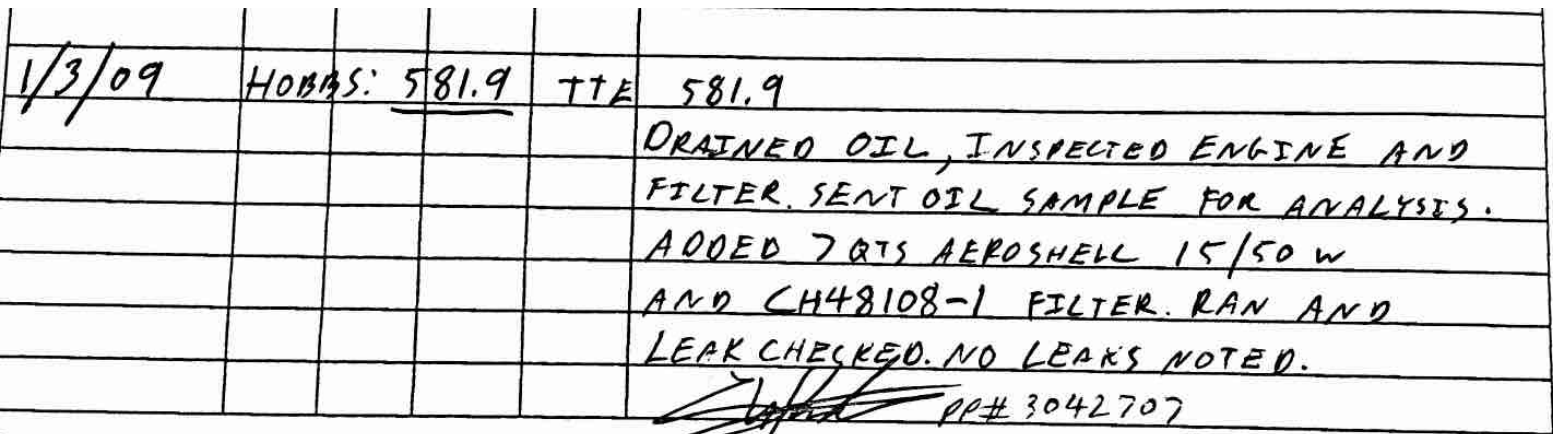 1/3/09 HOBBS: 581.9 TTE 581.9
DRAINED OIL, INSPECTED ENGINE AND
FILTER. SENT OIL SAMPLE FOR ANALYSIS.
ADDED 7 QTS AEROSHELL 15/50 W
AND CH48108-1 FILTER. RAN AND
LEAK CHECKED. NO LEAKS NOTED.
PP# 3042707